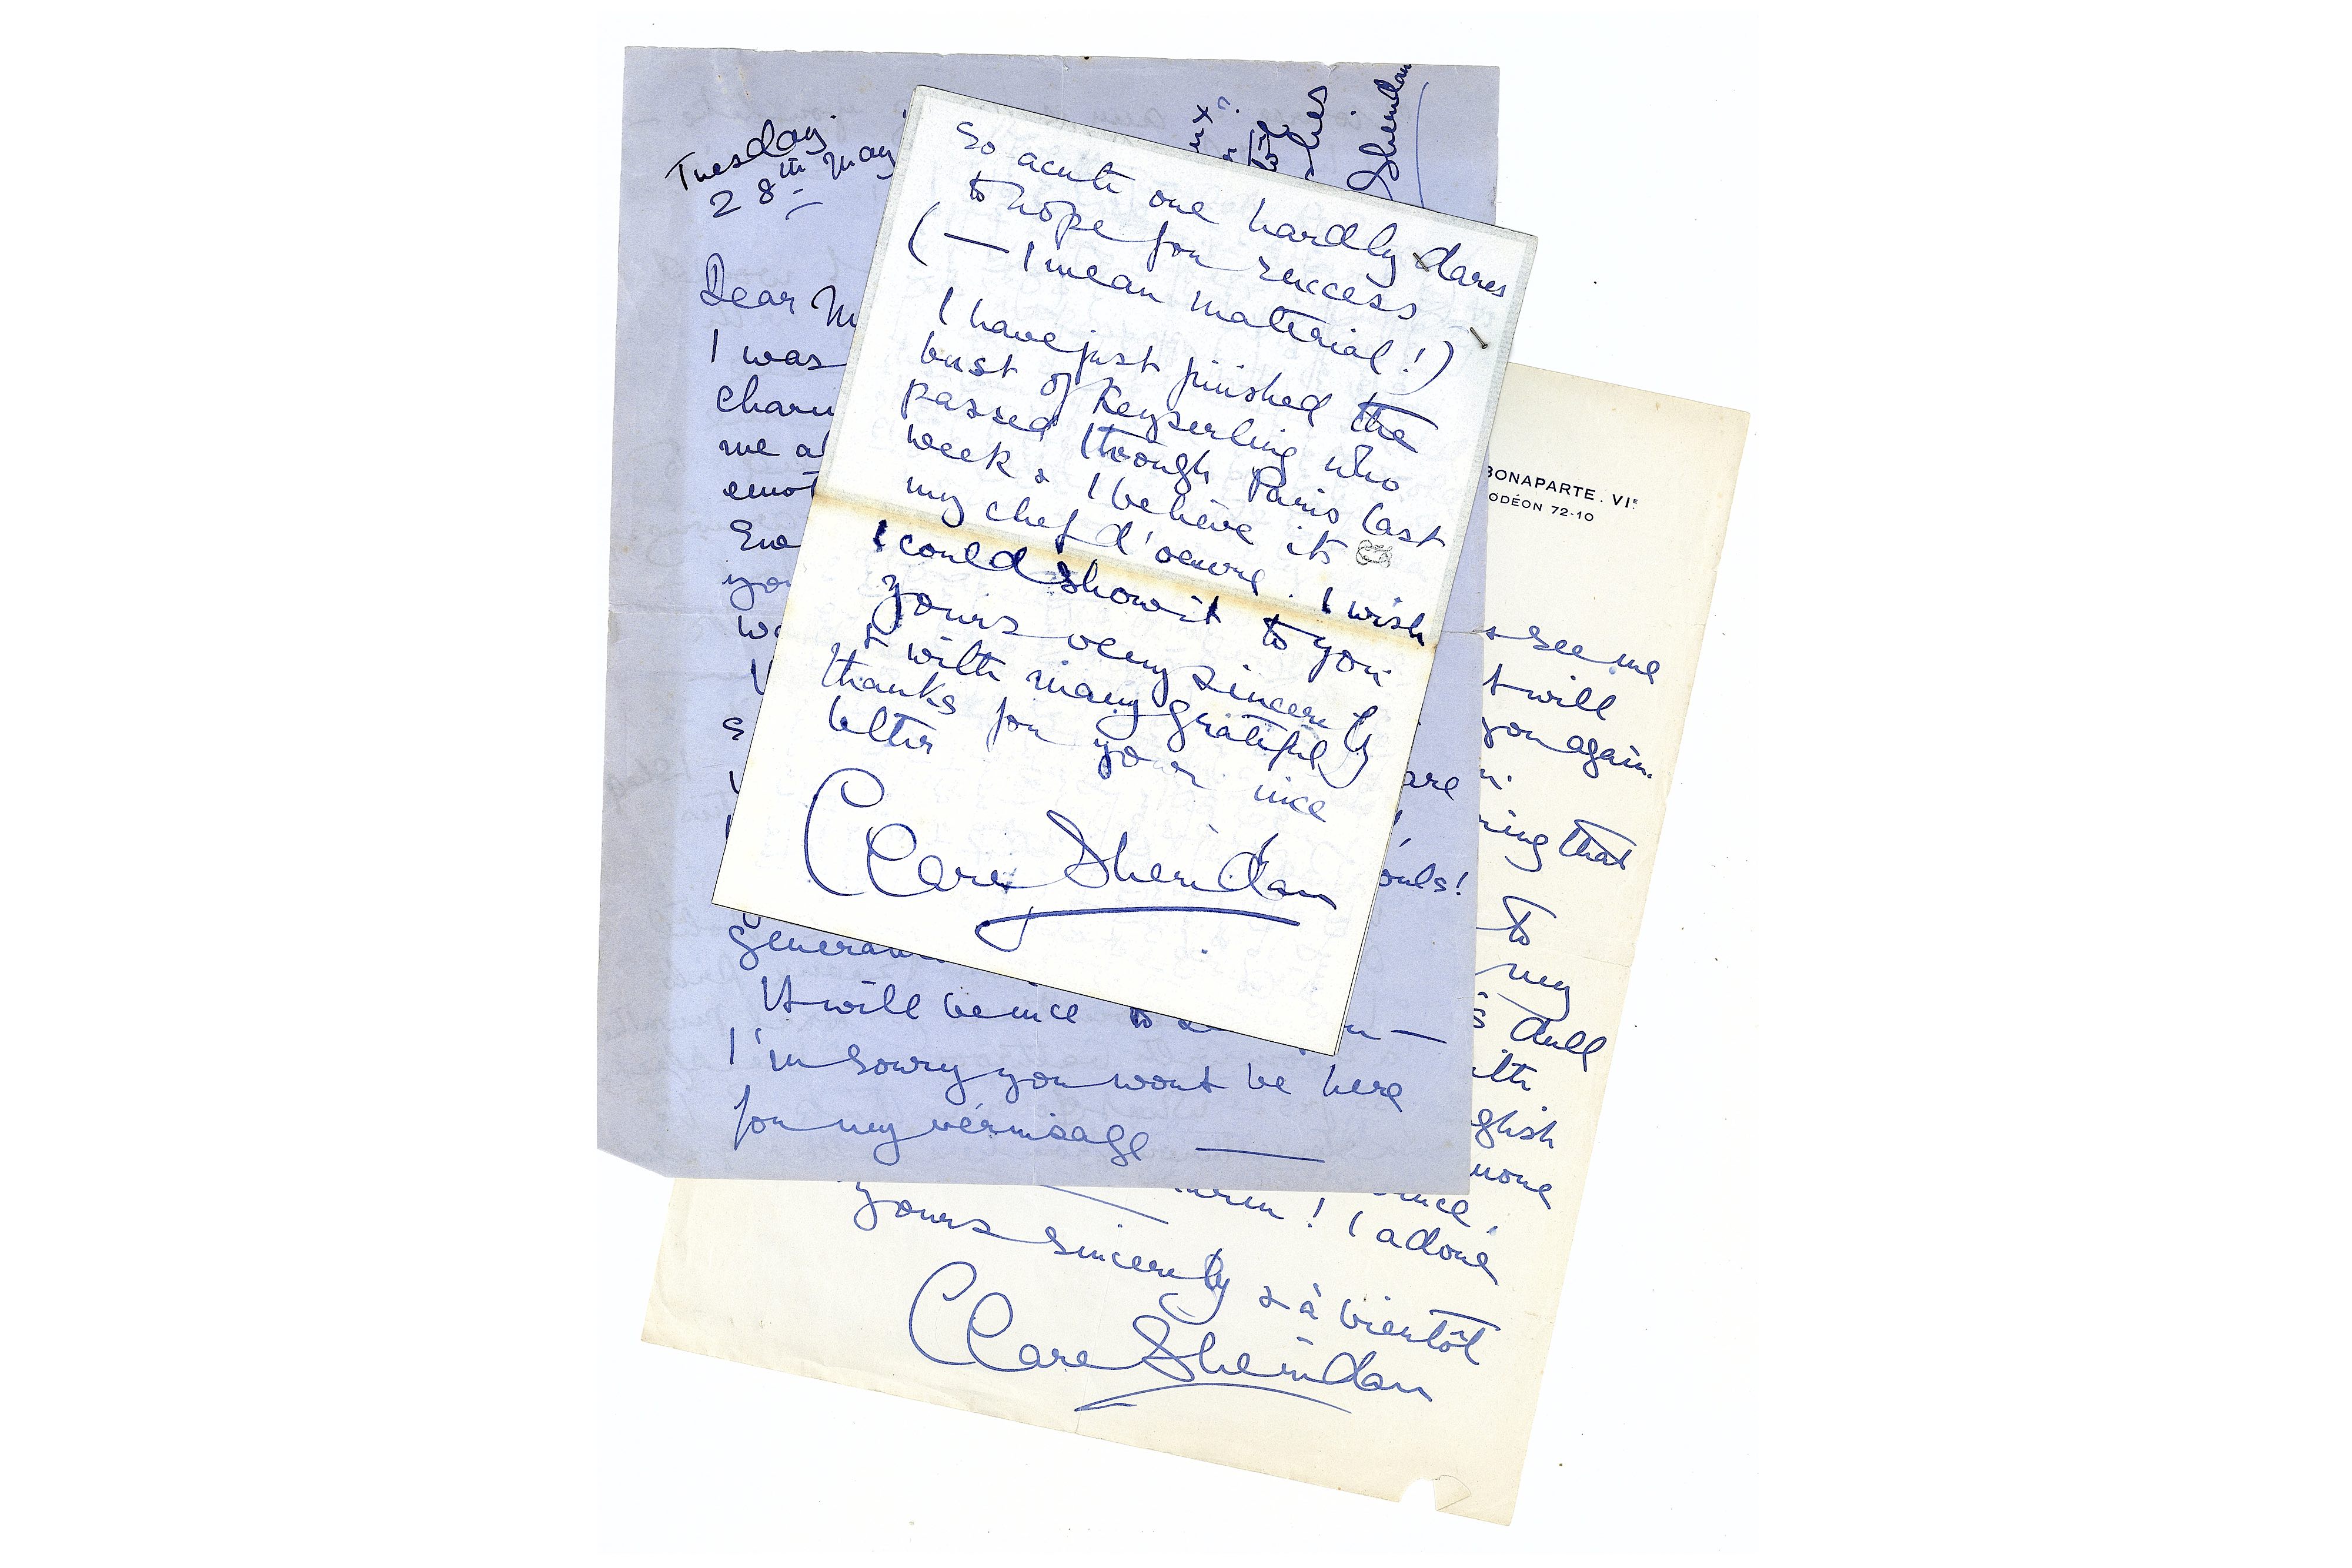 so acute one hardly dares
to hope for success
(— I mean material!)
I have just finished the
bust of Keyserling who
passed through Paris last
week & I believe its
my chef d'oeuvre. I wish
I could show it to you
yours very sincerely
& with many grateful
thanks for your nice
letter
Clare Sheridan
Tuesday.
28th May
Dear M
I was
charm
me a
emot
you
are
genera
It will be nice to
I'm sorry you wont be here
for my vernisage —
Sheridan
BONAPARTE. VIE
ODÉON 72-10
& see me
will
you again.
ring that
to
my
dull
glish
! I adore
yours sincerely & à bientôt
Clare Sheridan